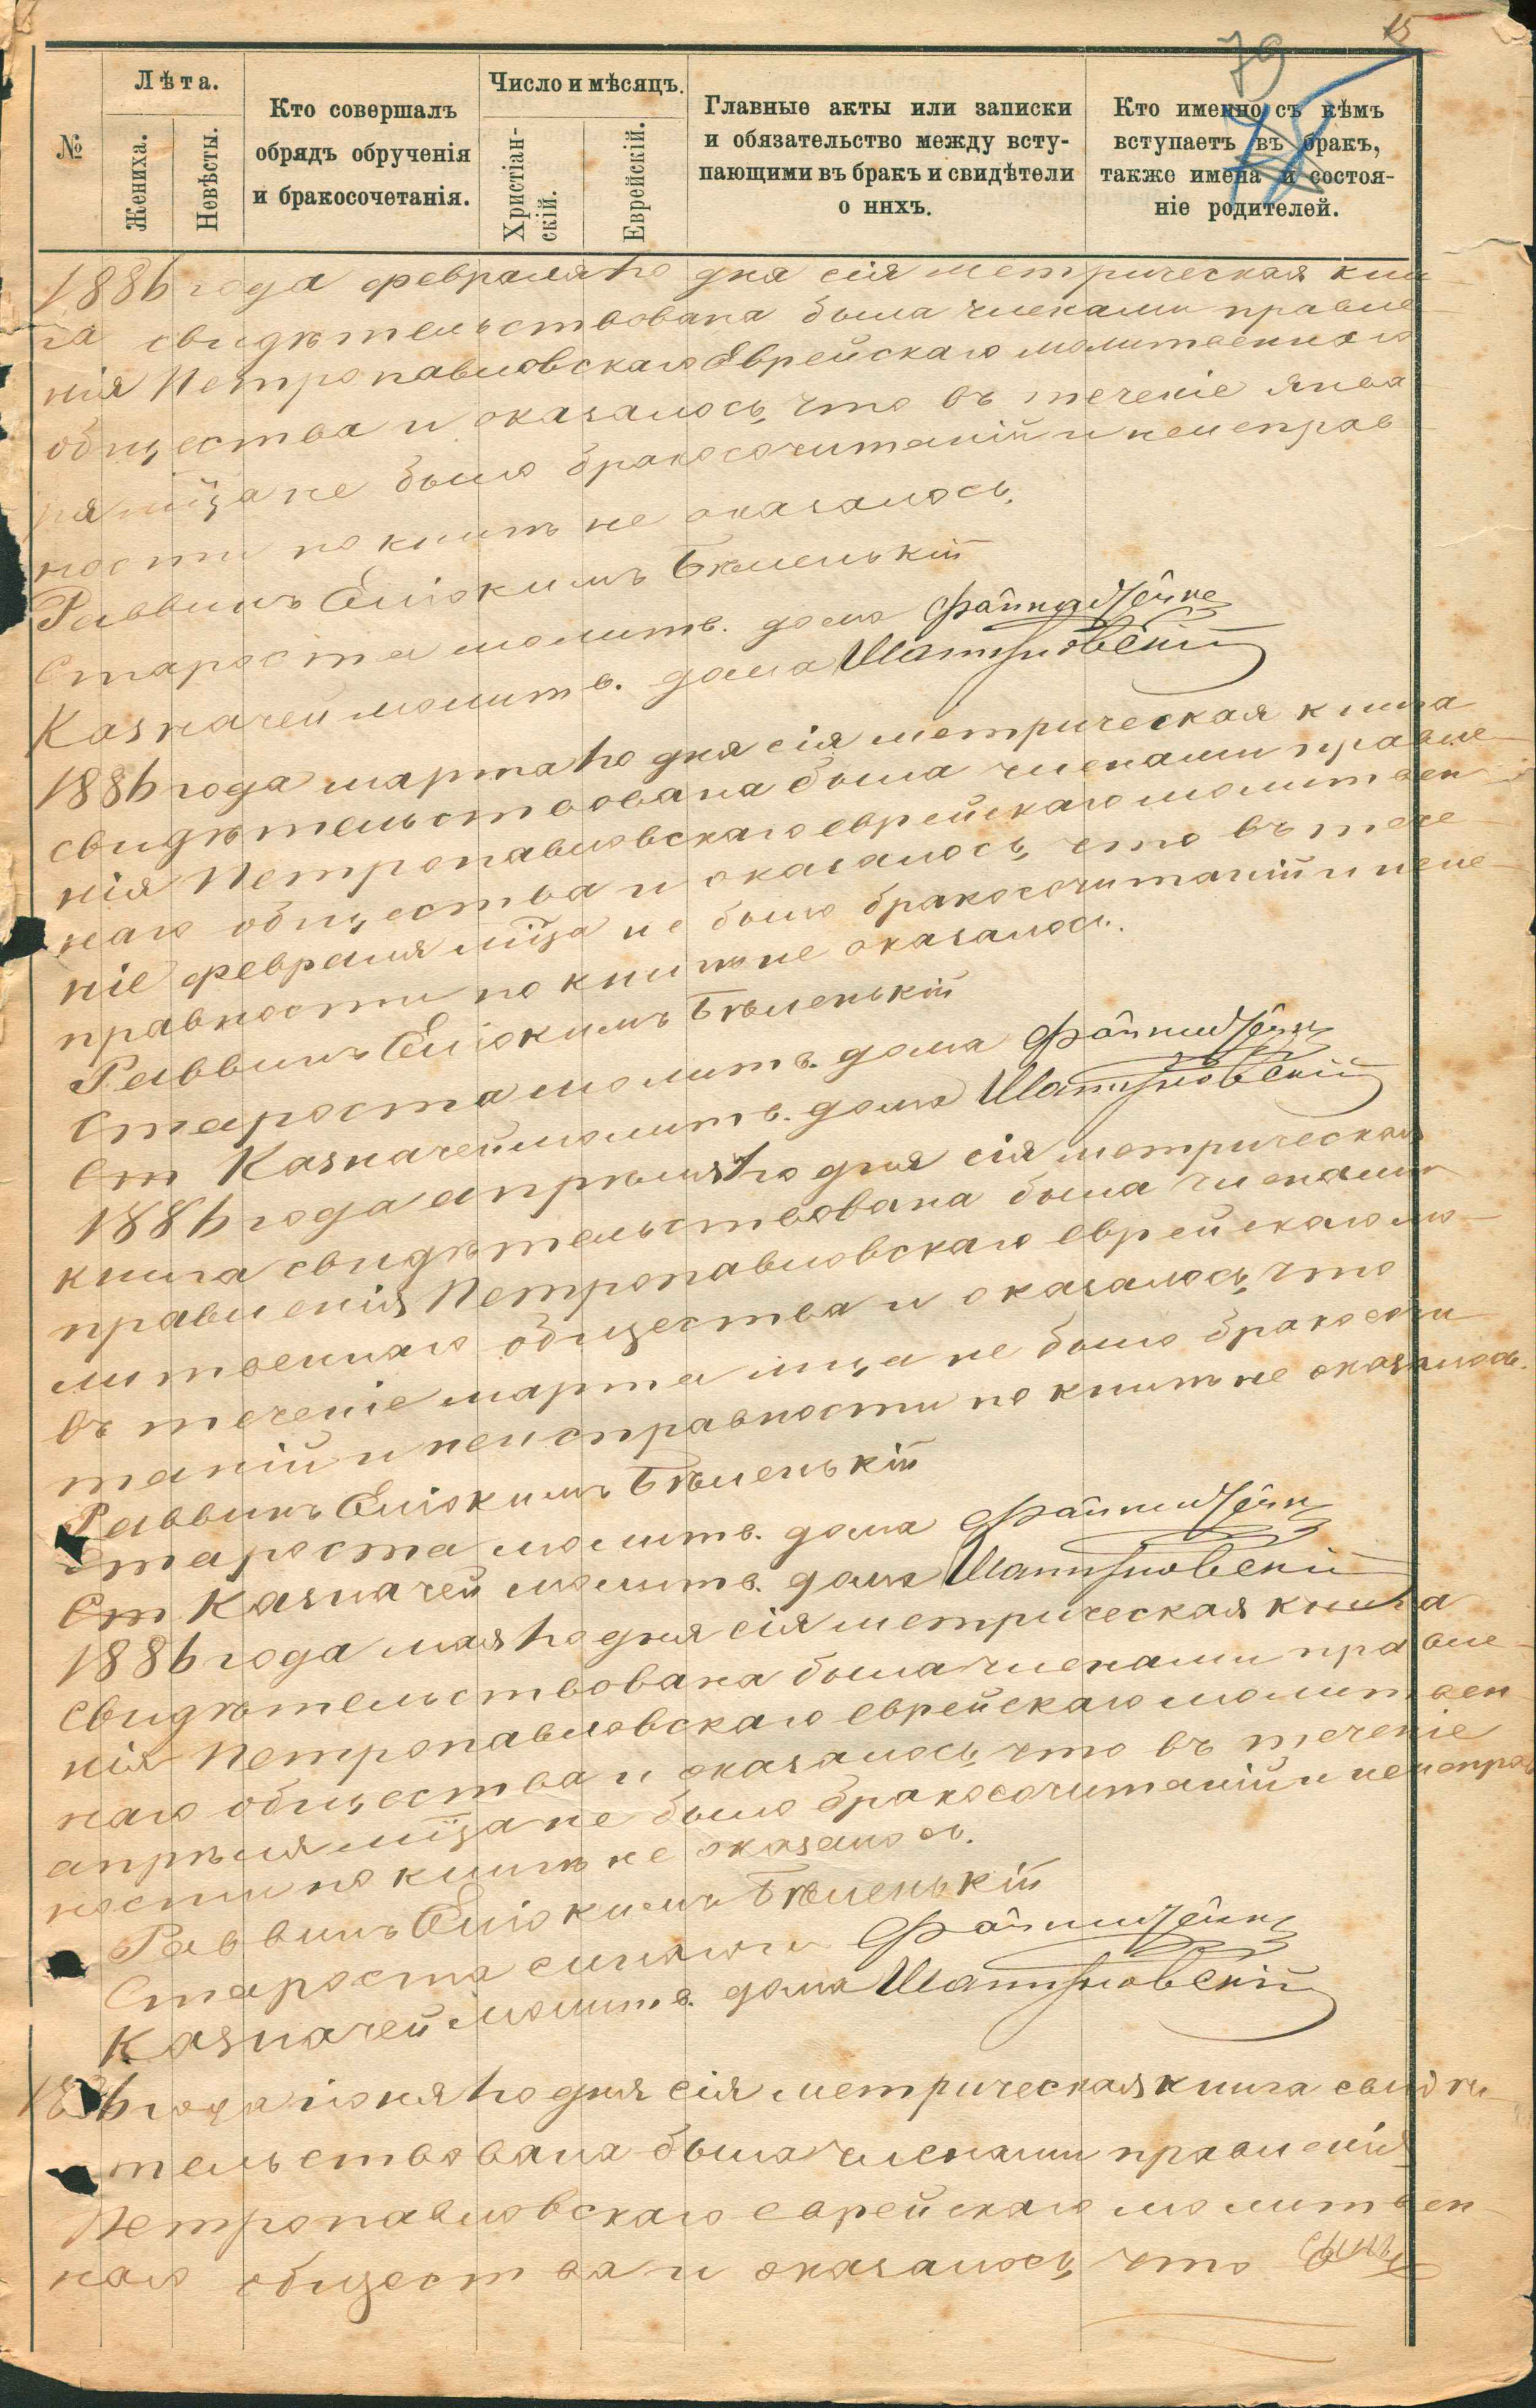 15
79
№
Лѣта.
Жениха.
Невѣсты.
Кто совершалъ
обрядъ обрученія
и бракосочетанія.
Число и мѣсяцъ.
Христіан-
скій.
Еврейскій.
Главные акты или записки
и обязательство между всту-
пающими въ бракъ и свидѣтели
о нихъ.
Кто именно съ кѣмъ
вступаетъ въ бракъ,
также имена и состоя-
ніе родителей.
1886 года февраля 1го дня сія метрическая кни
га свидѣтельствована была членами правле
нія Петропавловскаго Еврейскаго молитвеннаго
общества и оказалось, что въ теченіе янва
ря мѣсца не было бракосочитаній и неисправ
ности по книгѣ не оказалось.
Раввинъ Еліокимъ Бѣленькій
Староста молитв. дома
Казначей молитв. дома Шатуновскій
1886 года марта 1го дня сія метрическая книга
свидѣтельствована была членами правле-
нія Петропавловскаго еврейскаго молитвен
наго общества и оказалось, что въ тече-
ніе февраля мѣсца не было бракосочитаній и неис-
правности по книгѣ не оказалось.
Раввинъ Еліокимъ Бѣленькій
Староста молитв. дома
Ст Казначей молитв. дома Шатуновскій
1886 года апрѣля 1го дня сія метрическая
книга свидѣтельствована была членами
правленія Петропавловскаго еврейскаго мо-
литвеннаго общества и оказалось, что
въ теченіе марта мца не было бракосочи
таній и неисправности по книгѣ не оказалось.
Раввинъ Еліокимъ Бѣленькій
Староста молитв. дома
Ст Казначей молитв. дома Шатуновскій
1886 года мая 1го дня сія метрическая книга
свидѣтельствована была членами правле-
нія Петропавловскаго еврейскаго молитвен
наго общества и оказалось, что въ теченіе
апрѣля мѣсца не было бракосочитаній и неисправ
ности по книгѣ не оказалось.
Раввинъ Еліокимъ Бѣленькій
Староста синагоги
Казначей молитв. дома Шатуновскій
1886 года іюня 1го дня сія метрическая книга свидѣ
тельствована была членами правленія
Петропавловскаго еврейскаго молитвен-
наго общества и оказалось, что